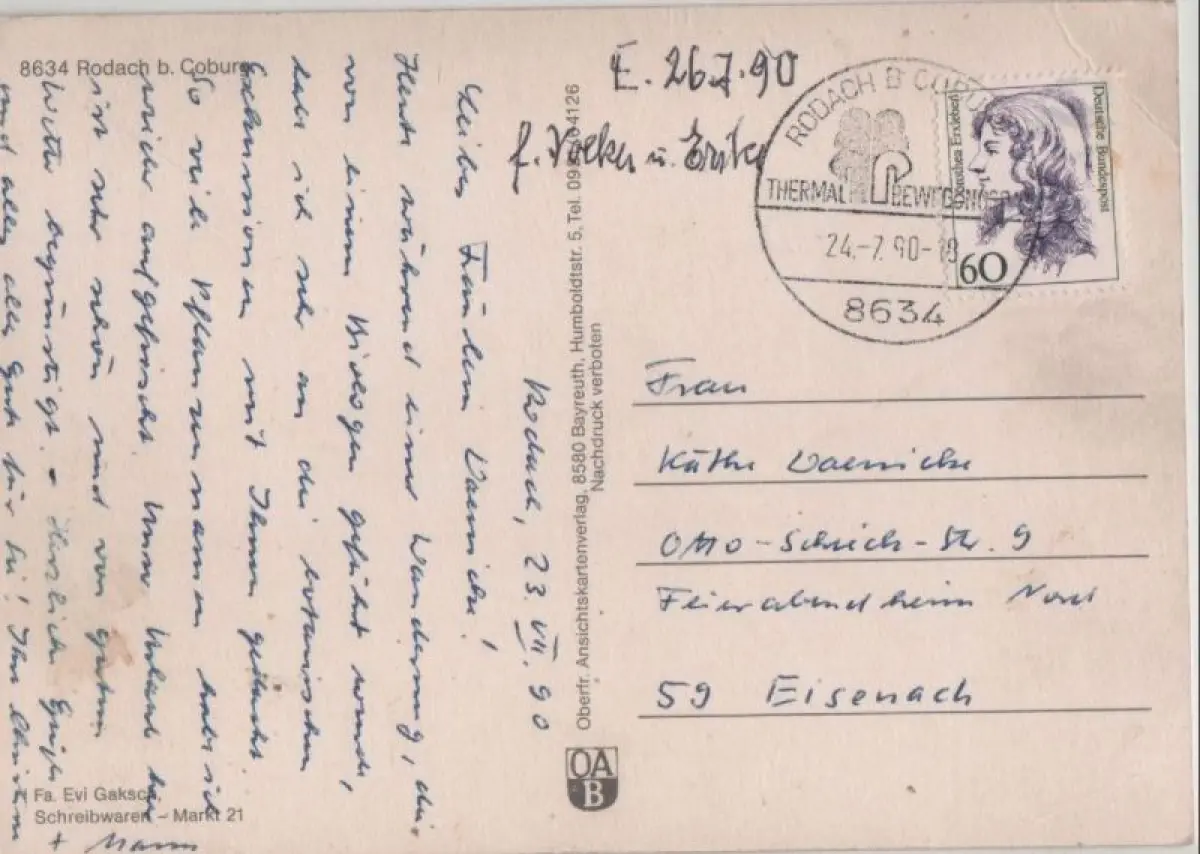 8634 Rodach b. Coburg
Rodach, 23. VII. 90
Liebes Fräulein
Heute während einer Wanderung, die
von einem Biologen geführt wurde,
habe ich sehr an die botanischen
Exkursionen mit Ihnen gedacht.
So viele Pflanzennamen habe ich
wieder aufgefrischt. Unser Urlaub hier
ist sehr schön und von gutem
Wetter begünstigt. - Herzliche Grüße
und alles, alles Gute für Sie! Ihre
+ Mann
Fa. Evi Gaksch,
Schreibwaren - Markt 21
Oberfr. Ansichtskartenverlag, 8580 Bayreuth, Humboldtstr. 5, Tel. 4126
Nachdruck verboten
OA
B
E. 26.7.90
f. Volker u.
RODACH B COBU
THERMAL BEWEGUNGS
24.-7.90-18
8634
Dorothea Erxleben
Deutsche Bundespost
60
Frau
Käthe
Otto-Schick-Str. 9
Feierabendheim Nord
59 Eisenach